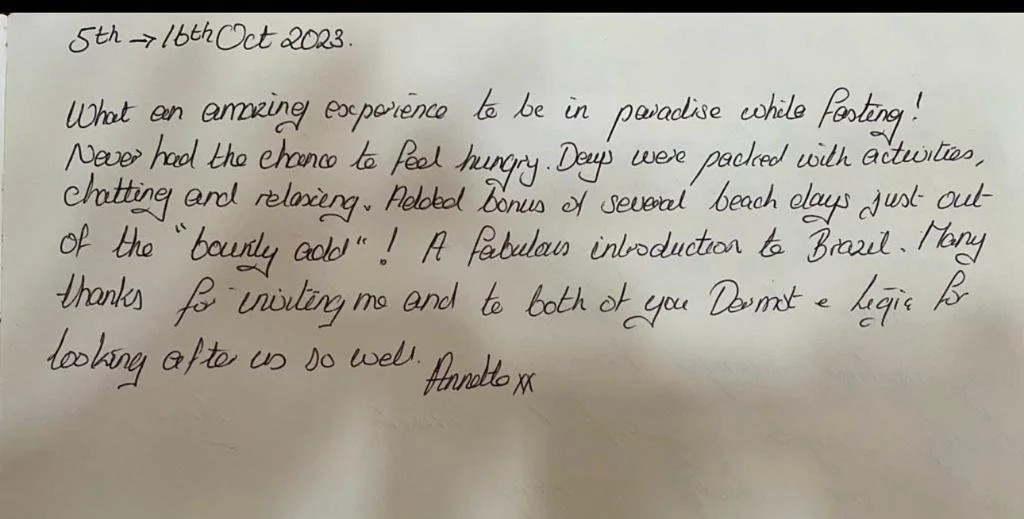 5th → 16th Oct 2023.
What an amazing experience to be in paradise while fasting!
Never had the chance to feel hungry. Days were packed with activities,
chatting and relaxing. Added bonus of several beach days just out
of the "bounty add"! A fabulous introduction to Brazil. Many
thanks for inviting me and to both of you Dermot & Ligia for
looking after us so well. Annette xx